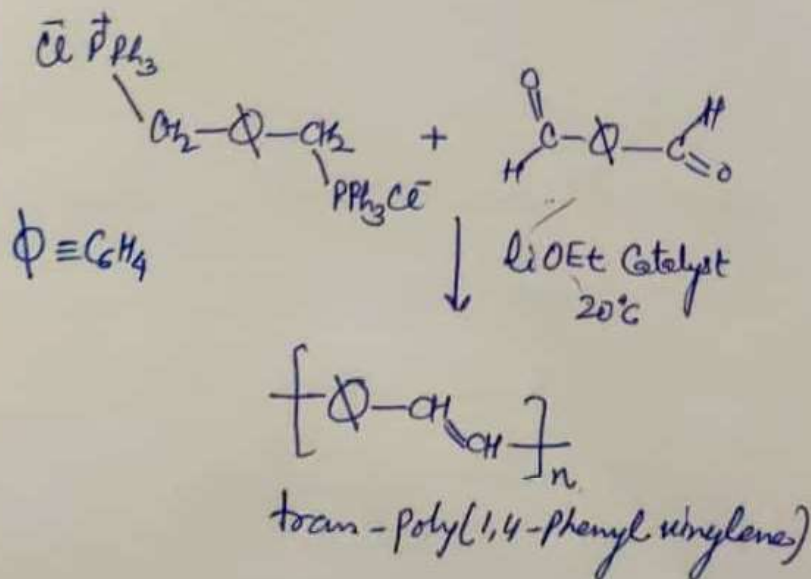 C̄l P⁺Ph₃
CH₂—Φ—CH₂ + O H
H C—Φ—C O
PPh₃Cl⁻
Φ ≡ C₆H₄
LiOEt Catalyst
20°C
[Φ—CH=CH]n
trans-poly(1,4-phenyl vinylenes)